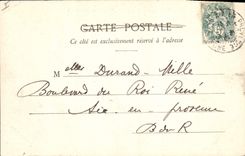 CARTE POSTALE
Ce côté est exclusivement réservé à l'adresse
Melles Durand-Mille
Boulevard du Roi René
Aix en provence
B du R